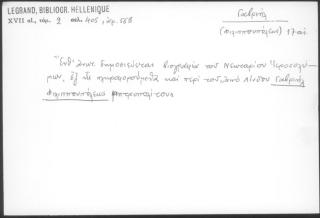 LEGRAND, BIBLIOGR. HELLENIQUE
XVII αἰ, τόμ. 2 σελ. 405, ἀρ. 568
Γαβριήλ
(Φιλιππουπόλεως) 17 αἰ
Ἔνθ' ἄνωτ. δημοσιεύεται βιογραφία τοῦ Νεκταρίου Ἱεροσολύ-
μων, ἐξ ἧς πληροφορούμεθα καὶ περὶ τοῦ ἀπὸ Λίνδου Γαβριὴλ
Φιλιππουπόλεως μητροπολίτου